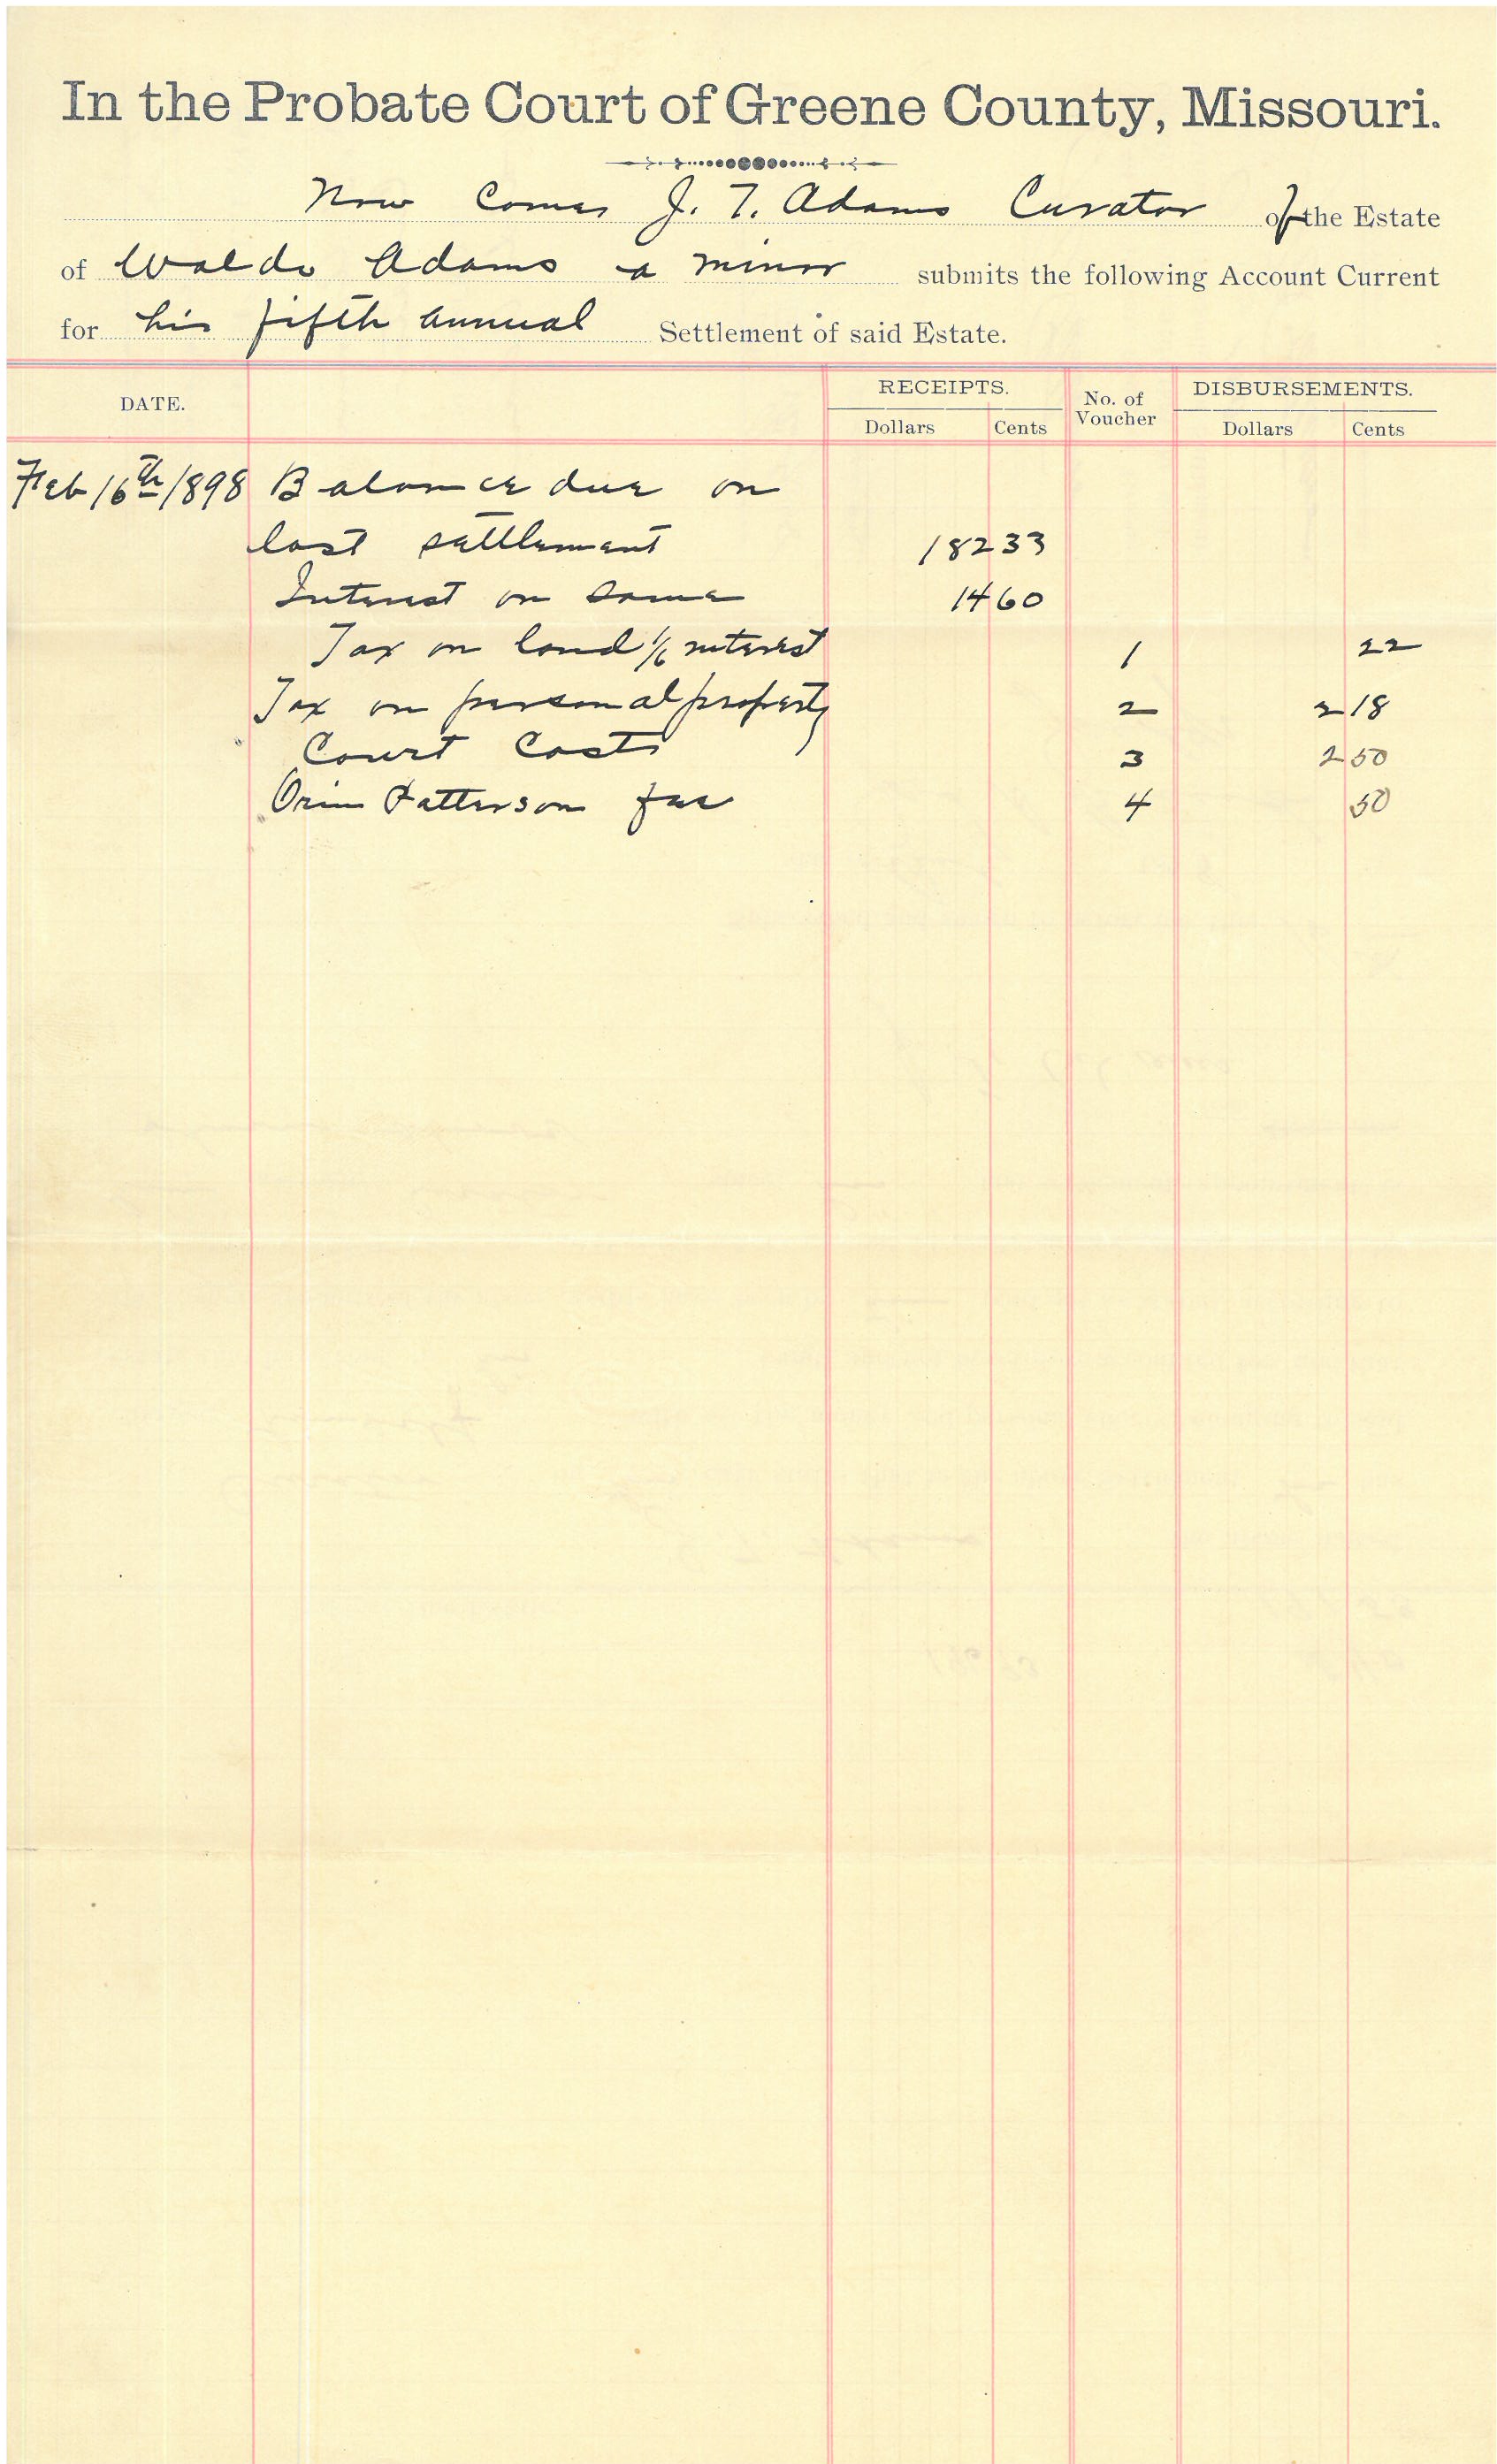 In the Probate Court of Greene County, Missouri.
Now Comes J. T. Adams Curator of the Estate
of Waldo Adams a minor submits the following Account Current
for his fifth annual Settlement of said Estate.
DATE. RECEIPTS. No. of Voucher DISBURSEMENTS.
Dollars Cents Dollars Cents
Feb 16th 1898 Balance due on
last settlement 182 33
Interest on same 14 60
Tax on land 1/6 interest 1 22
Tax on personal property 2 2 18
Court Costs 3 2 50
Orin Patterson fee 4 50